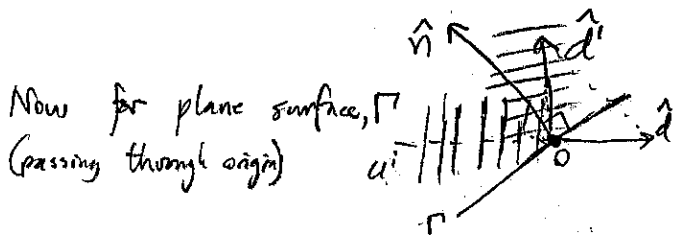 n̂
d̂'
Now for plane surface, Γ
(passing through origin)
uⁱ
d̂
O
Γ